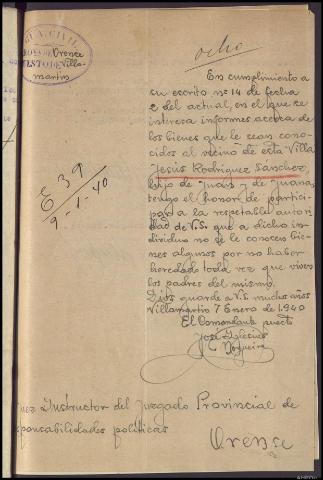 GUARDIA CIVIL
Orense
PUESTO DE Villa-
martin
ocho
En cumplimiento a
su escrito nº 14 de fecha
2 del actual, en el que se
interesa informes acerca de
los bienes que le sean cono-
cidos al vecino de esta Villa
Jesús Rodriguez Sánchez,
hijo de Juan y de Juana,
tengo el honor de partici-
par a la respetable autori-
dad de V.S. que a dicho in-
dividuo no se le conocen bie-
nes algunos por no haber
heredado toda vez que viven
los padres del mismo.
Dios guarde a V.S. muchos años
Villamartin 7 Enero de 1940
El Comandante puesto
José Iglesias
Nogueira
E 39
9-1-40
uez Instructor del Juzgado Provincial de
sponsabilidades politicas
Orense